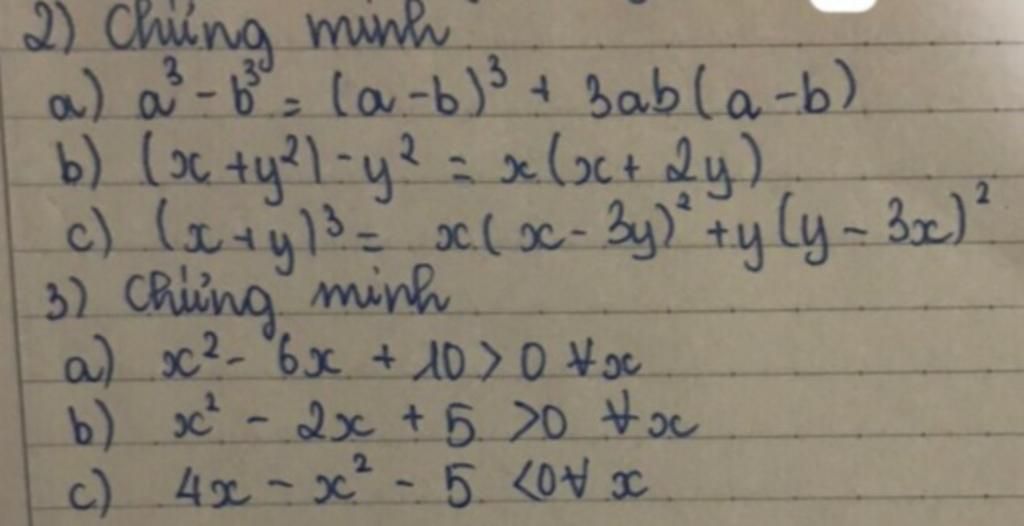 2) Chứng minh
a) a³ - b³ = (a - b)³ + 3ab(a - b)
b) (x + y²) - y² = x(x + 2y)
c) (x + y)³ = x(x - 3y)² + y(y - 3x)²
3) Chứng minh
a) x² - 6x + 10 > 0 ∀x
b) x² - 2x + 5 > 0 ∀x
c) 4x - x² - 5 < 0 ∀x